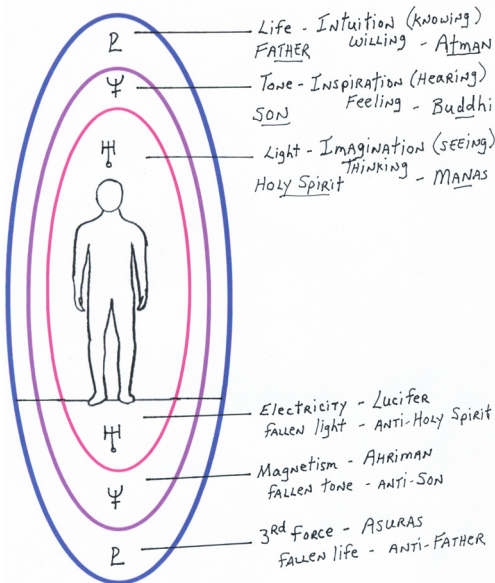 Life - Intuition (knowing)
FATHER Willing - Atman
Tone - Inspiration (Hearing)
SON Feeling - Buddhi
Light - Imagination (seeing)
Holy Spirit Thinking - Manas
Electricity - Lucifer
Fallen light - Anti-Holy Spirit
Magnetism - Ahriman
Fallen tone - Anti-Son
3rd Force - Asuras
Fallen life - Anti-Father